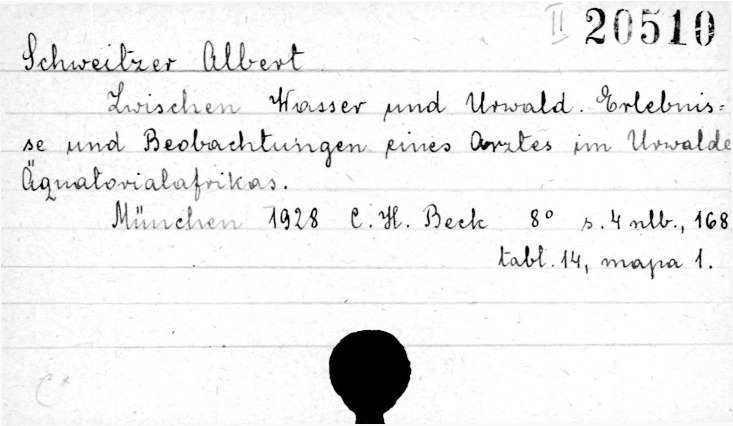 II 20510
Schweitzer Albert
Zwischen Wasser und Urwald. Erlebnis=
se und Beobachtungen eines Arztes im Urwalde
Äquatorialafrikas.
München 1928 C. H. Beck 8° s. 4 nlb., 168
tabl. 14, mapa 1.